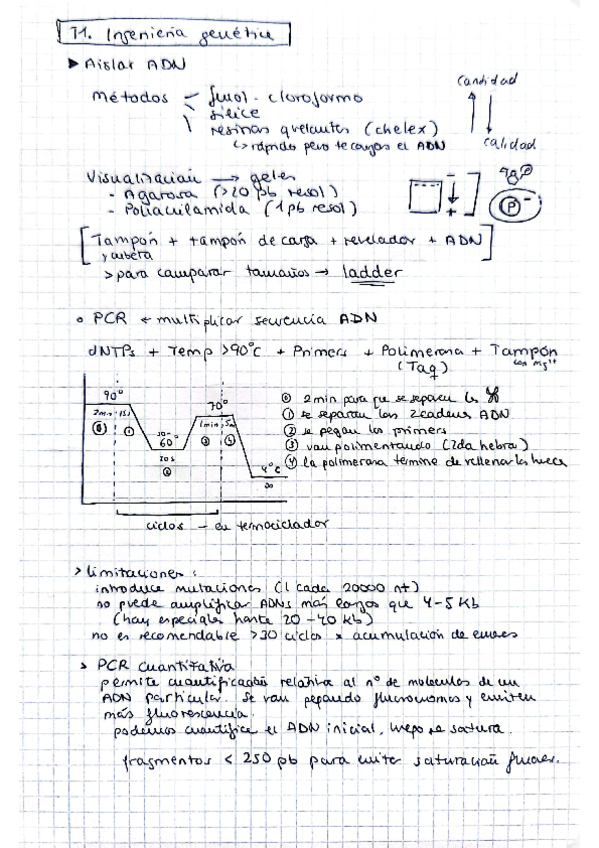 T1. Ingeniería genética
▶ Aislar ADN
Métodos - fenol - cloroformo
sílice
resinas quelantes (chelex)
↳ rápido pero te cargas el ADN
Cantidad
calidad
Visualización → geles
- Agarosa (>20 pb resol)
- Poliacrilamida (1 pb resol)
- +
P -
[Tampón + tampón de carga + revelador + ADN]
y cubeta
> para comparar tamaños → ladder
o PCR ← multiplicar secuencia ADN
dNTPs + Temp >90°C + Primers + Polimerasa + Tampón
(Taq) con Mg++
90°
2min 15s
⓪ ①
60°
20s
②
70°
1min 5m
③ ④
4°C
∞
⓪ 2min para que se separen los
① se separan las 2 cadenas ADN
② se pegan los primers
③ van polimerizando (2da hebra)
④ la polimerasa termine de rellenar los huecos
ciclos - en termociclador
> limitaciones:
introduce mutaciones (1 cada 20000 nt)
no puede amplificar ADNs más largos que 4-5 Kb
(hay especiales hasta 20-40 kb)
no es recomendable >30 ciclos x acumulación de errores
> PCR cuantitativa
permite cuantificación relativa al nº de moléculas de un
ADN particular. Se van pegando fluorocromos y emiten
más fluorescencia.
podemos cuantificar el ADN inicial, luego se satura.
fragmentos < 250 pb para evitar saturación